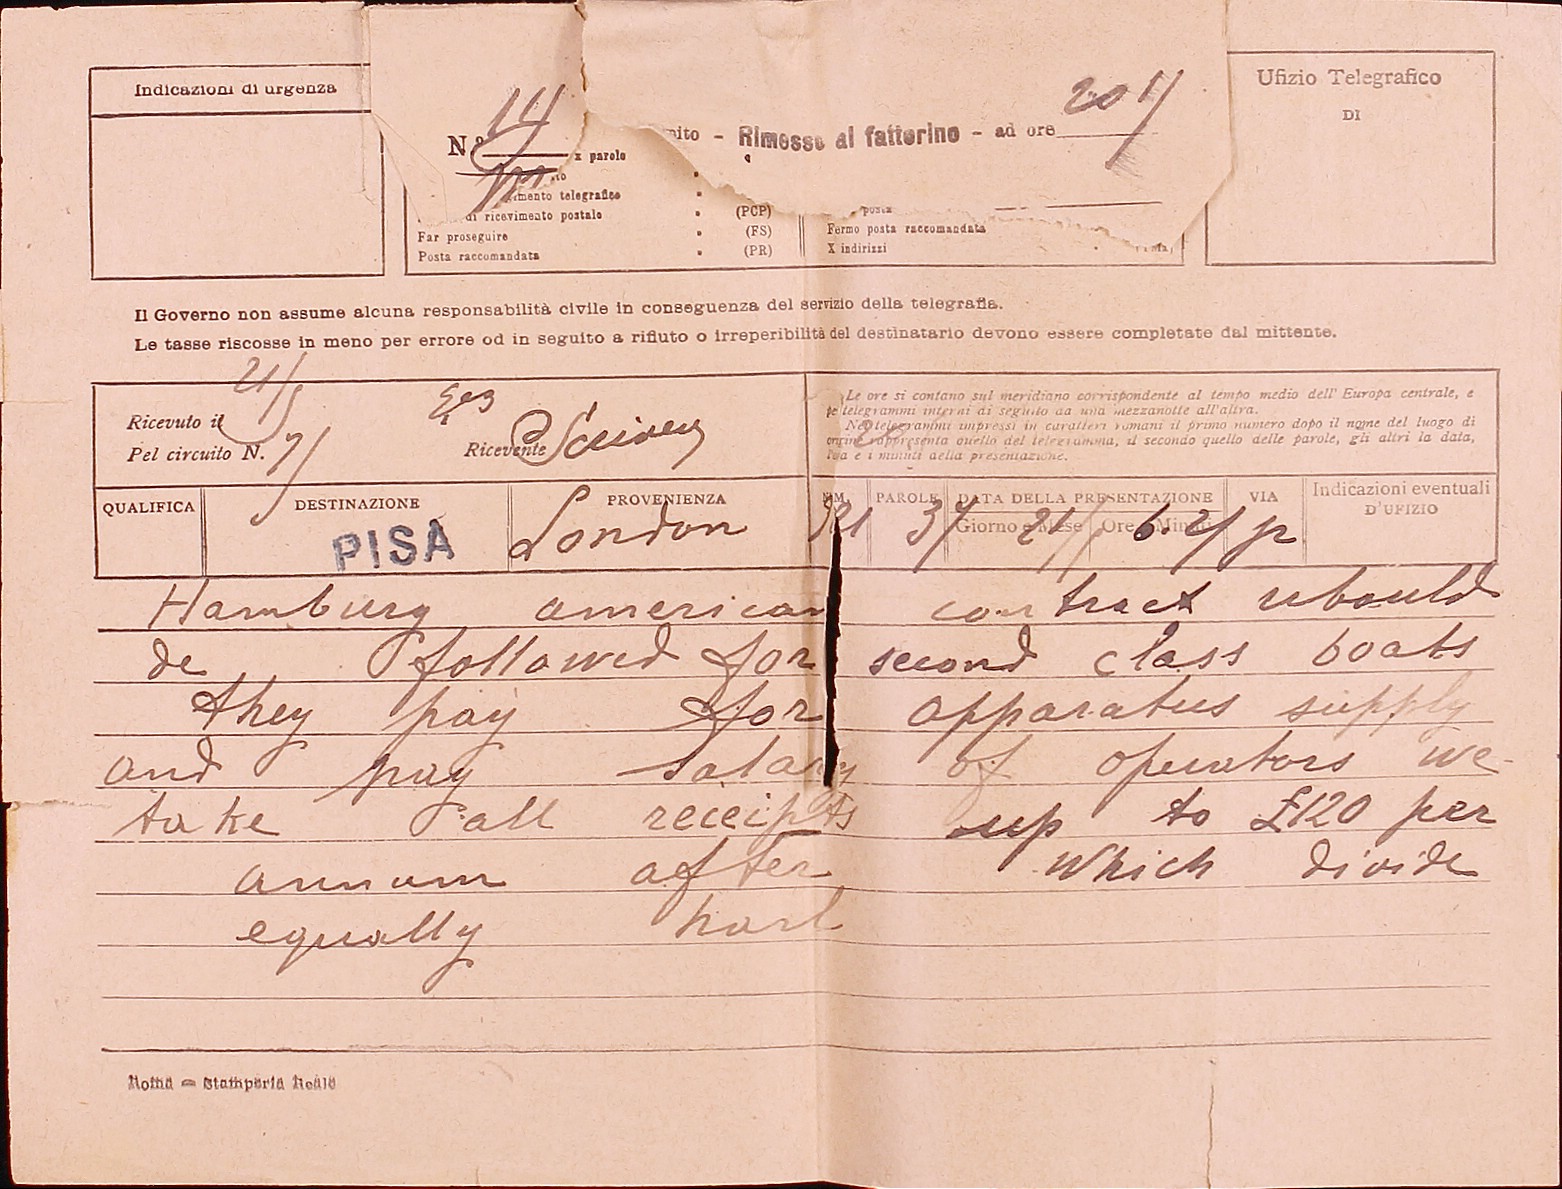 Indicazioni di urgenza
Ufizio Telegrafico
DI
N.º 14
- Rimesso al fattorino - ad ore 20
x parole
telegrafico
di ricevimento postale (PCP)
posta
Far proseguire (FS)
Fermo posta raccomandata
Posta raccomandata (PR)
X indirizzi
Il Governo non assume alcuna responsabilità civile in conseguenza del servizio della telegrafia.
Le tasse riscosse in meno per errore od in seguito a rifiuto o irreperibilità del destinatario devono essere completate dal mittente.
Ricevuto il 21/
Pel circuito N. 7/
Ricevente
Le ore si contano sul meridiano corrispondente al tempo medio dell' Europa centrale, e
telegrammi interni di seguito da una mezzanotte all'altra.
Nei telegrammi impressi in caratteri romani il primo numero dopo il nome del luogo di
origine rappresenta quello del telegramma, il secondo quello delle parole, gli altri la data,
l'ora e i minuti della presentazione.
QUALIFICA
DESTINAZIONE
PISA
PROVENIENZA
London
NUM.
PAROLE
37
DATA DELLA PRESENTAZIONE
Giorno e Mese
21/
Ore e Minuti
6.2/
VIA
Indicazioni eventuali
D'UFIZIO
Hamburg american contract ubould
de followed for second class boats
they pay for apparatus supply
and pay salary of operators we
take all receipts up to £120 per
annum after which divide
equally harl
Roma — Stamperia Reale